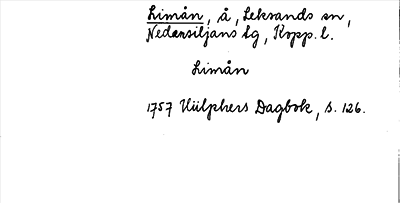 Limån, å, Leksands sn,
Nedansiljans tg, Kopp. l.
Limån
1757 Hülphers Dagbok, s. 126.